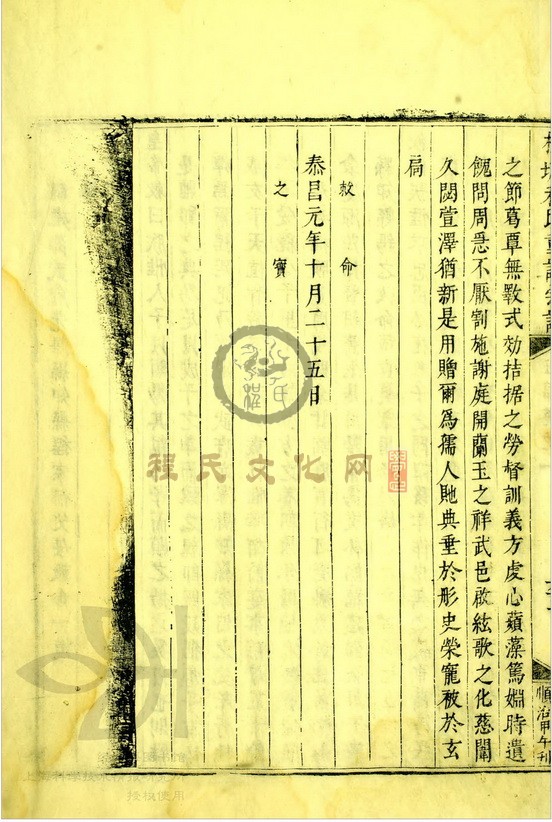 順治甲午刊
之節葛覃無斁式効拮据之勞督訓義方虔心蘋藻篤婣時遺
餽問周急不厭割施謝庭開蘭玉之祥武邑啟絃歌之化慈闈
久閟萱澤猶新是用贈爾為孺人貤典垂於彤史榮寵被於玄
扃
敕命
泰昌元年十月二十五日
之寶
程氏文化网
授权使用